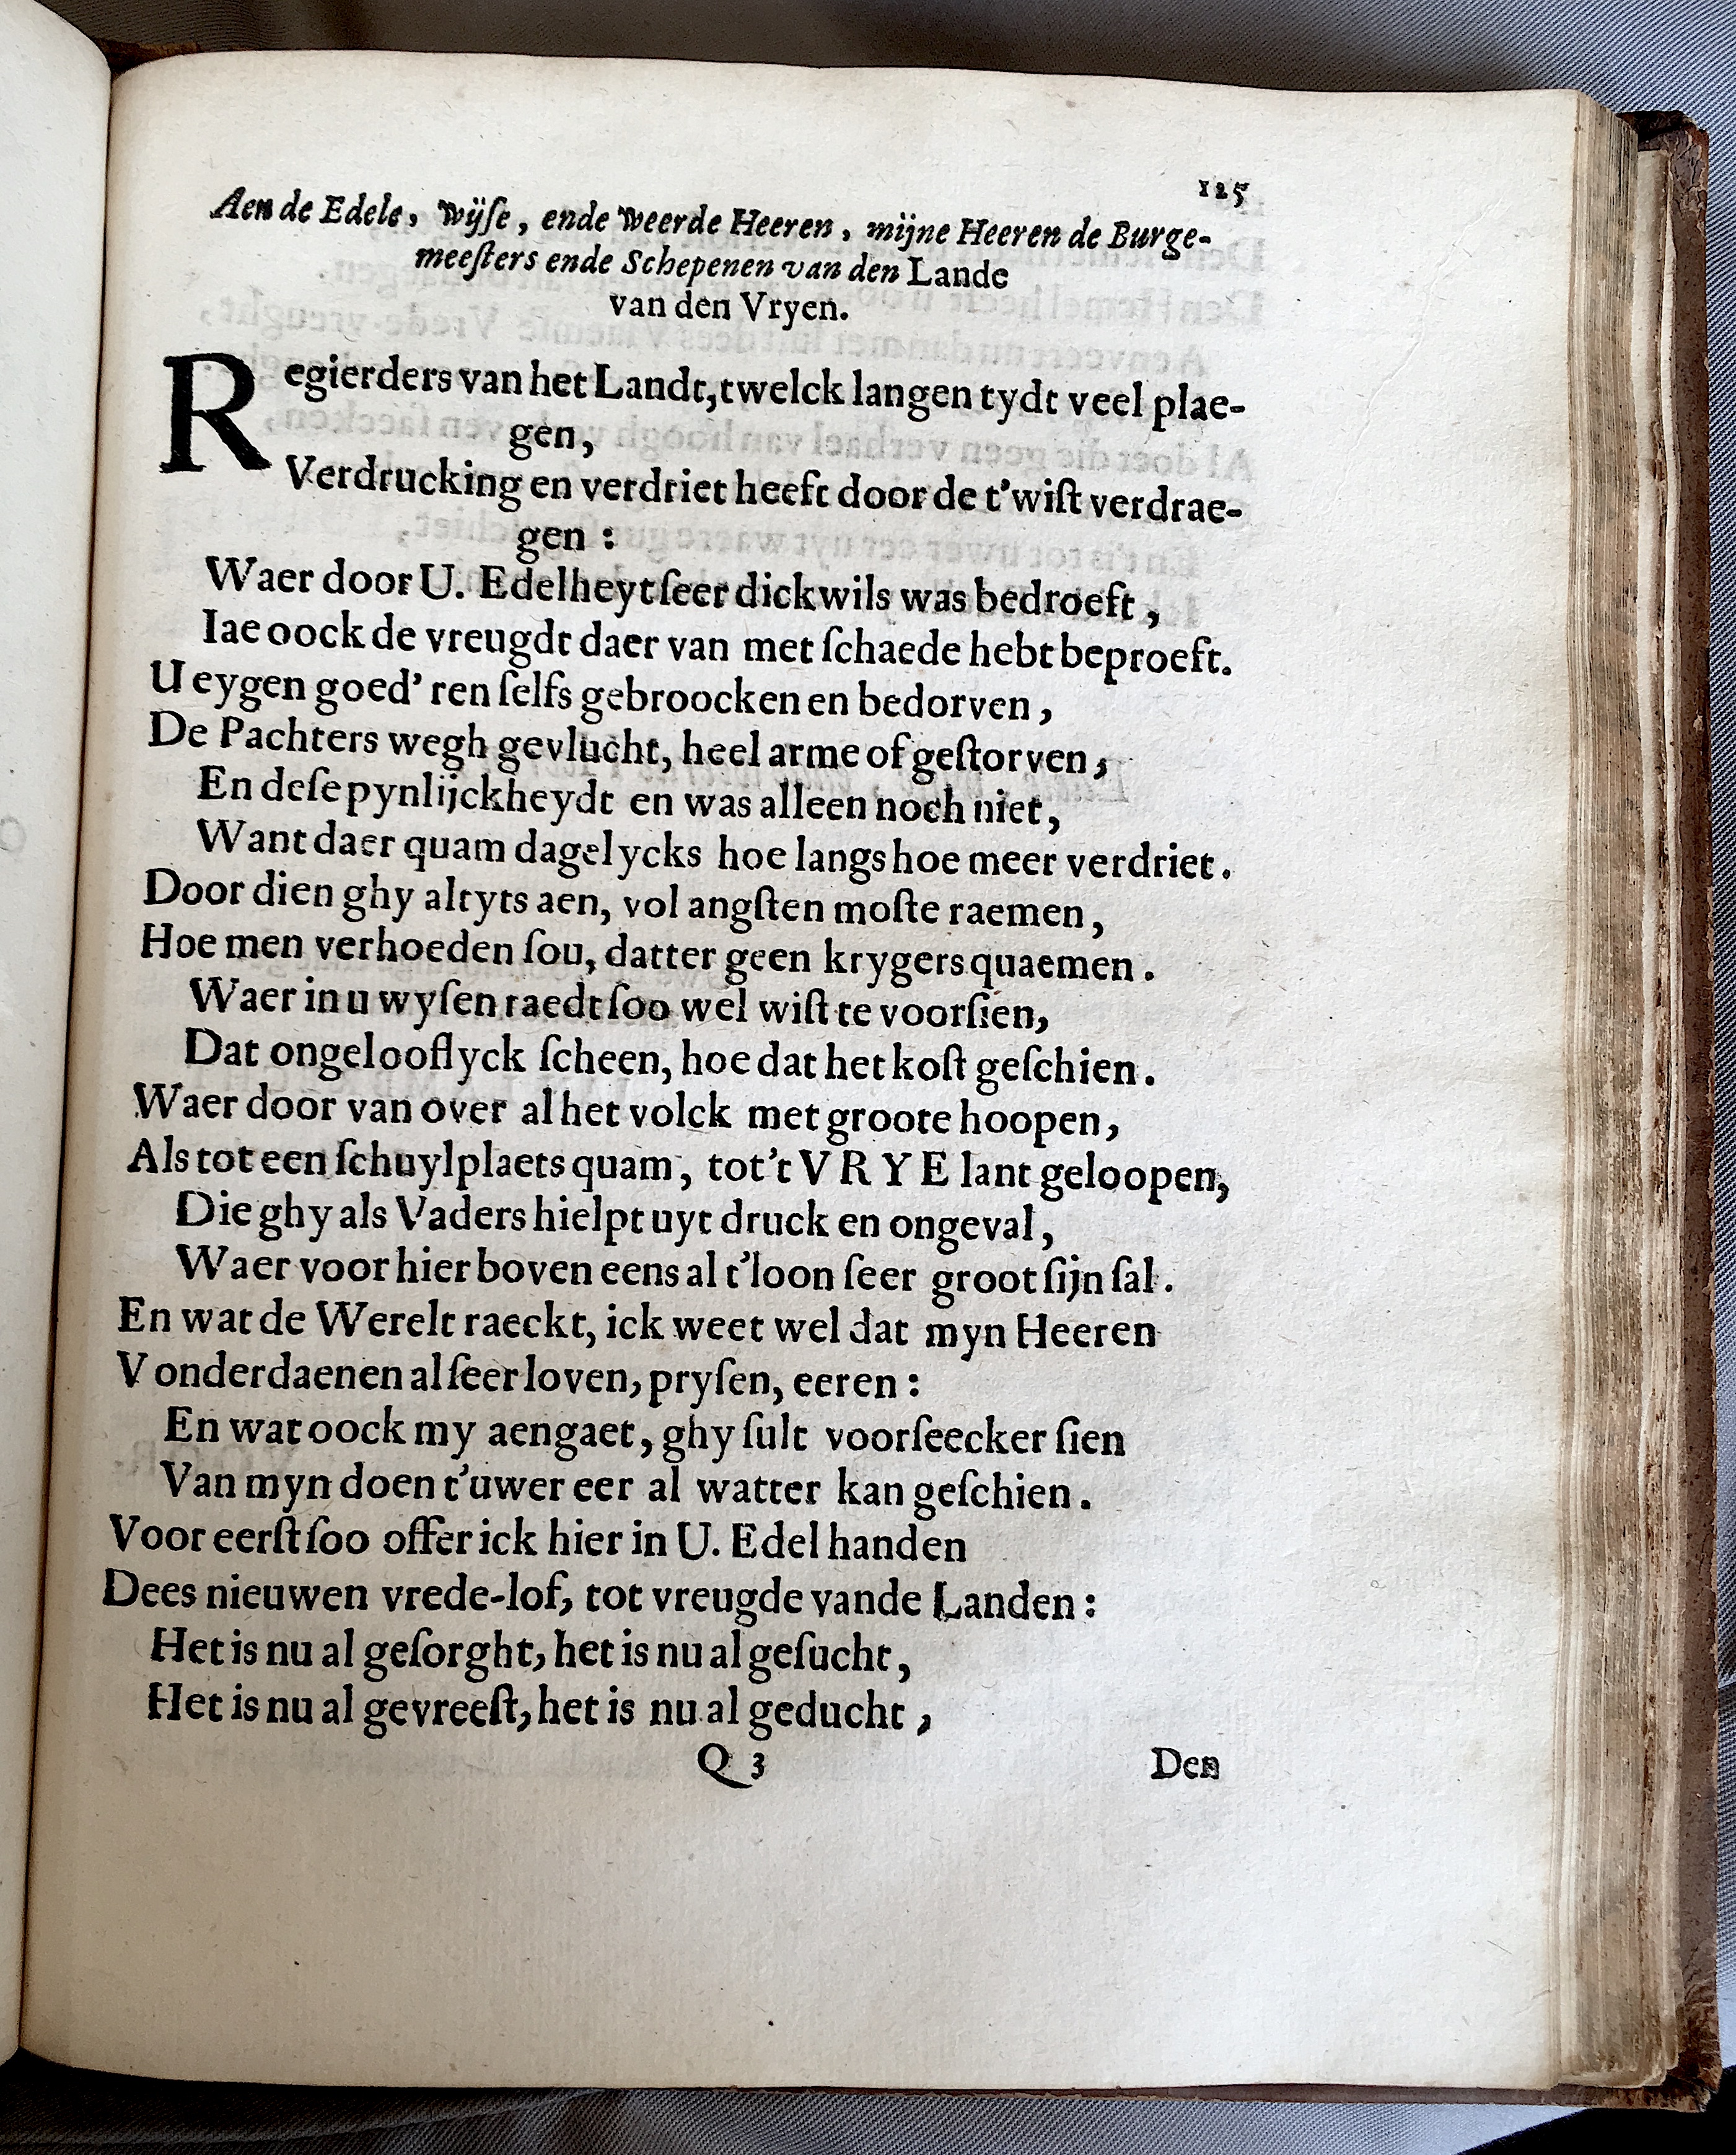 125
Aen de Edele, wijſe, ende weerde Heeren, mijne Heeren de Burge-
meeſters ende Schepenen van den Lande
van den Vryen.
Regierders van het Landt, twelck langen tydt veel plae-
gen,
Verdrucking en verdriet heeft door de t'wiſt verdrae-
gen :
Waer door U. Edelheyt ſeer dickwils was bedroeft,
Iae oock de vreugdt daer van met ſchaede hebt beproeft.
U eygen goed' ren ſelfs gebroocken en bedorven,
De Pachters wegh gevlucht, heel arme of geſtorven,
En deſe pynlijckheydt en was alleen noch niet,
Want daer quam dagelycks hoe langs hoe meer verdriet.
Door dien ghy altyts aen, vol angſten moſte raemen,
Hoe men verhoeden ſou, datter geen krygers quaemen.
Waer in u wyſen raedt ſoo wel wiſt te voorſien,
Dat ongelooflyck ſcheen, hoe dat het koſt geſchien.
Waer door van over al het volck met groote hoopen,
Als tot een ſchuylplaets quam, tot't VRYE lant geloopen,
Die ghy als Vaders hielpt uyt druck en ongeval,
Waer voor hier boven eens al t'loon ſeer groot ſijn ſal.
En wat de Werelt raeckt, ick weet wel dat myn Heeren
V onderdaenen al ſeer loven, pryſen, eeren :
En wat oock my aengaet, ghy ſult voorſeecker ſien
Van myn doen t'uwer eer al watter kan geſchien.
Voor eerſt ſoo offer ick hier in U. Edel handen
Dees nieuwen vrede-lof, tot vreugde vande Landen :
Het is nu al geſorght, het is nu al geſucht,
Het is nu al gevreeſt, het is nu al geducht,
Q 3 Den